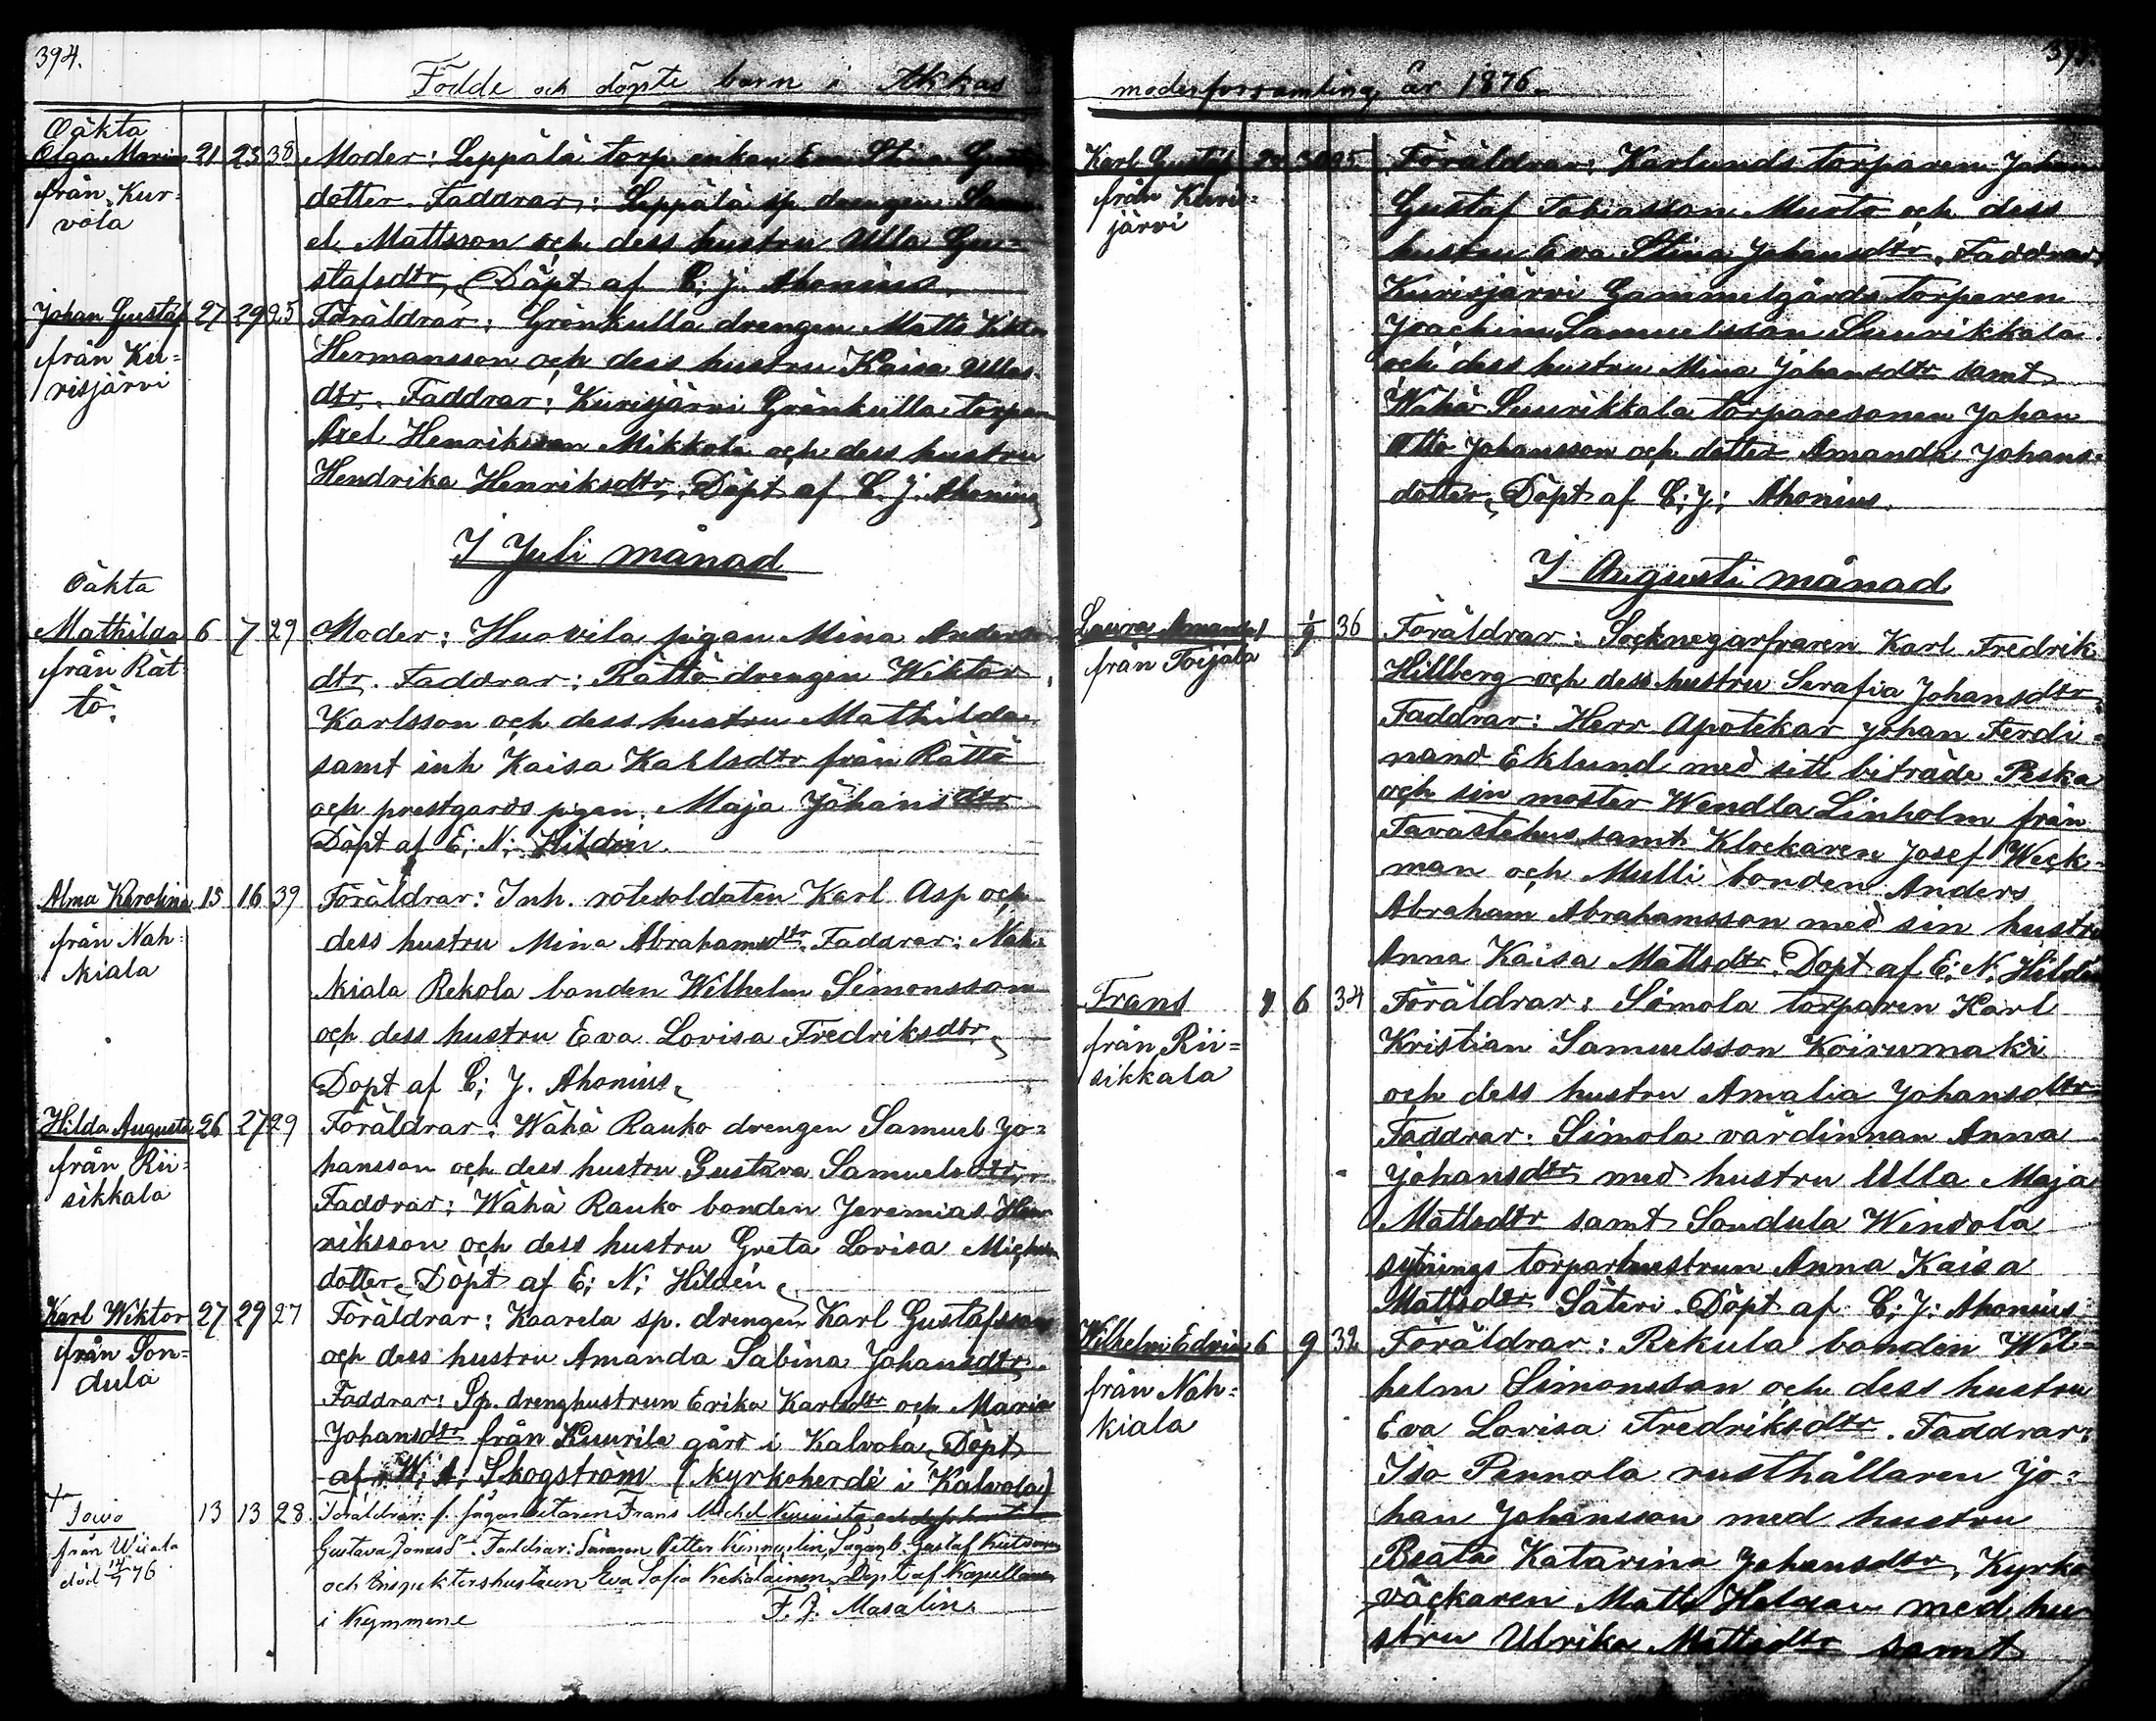 394.
Födde och döpte barn i Akkas
Oäkta
Olga Maria 21 23 38 Moder: Leppälä torp. enkan Eva Stina
från Kur-
vola
dotter. Faddrar: Leppälä sp. drengen
el Mattsson och dess hustru Ulla Gu-
stafsdtr, Döpt af C. J. Ahonius.
Johan Gustaf 27 29 25 Föräldrar: Grönkulla drengen Matts
från Ku-
risjärvi
Hermansson och dess hustru Kaisa Ullas-
dtr. Faddrar: Kurisjärvi Grönkulla torpar
Axel Henriksson Mikkola och dess hustru
Hendrika Henriksdtr, Döpt af C. J. Ahonius
I Juli månad
Oäkta
Mathilda 6 7 29 Moder: Huovila pigan Mina Anders
från Rät-
tö.
dtr. Faddrar: Rättö drengen Wiktor
Karlsson och dess hustru Mathilda
samt inh Kaisa Kahlsdtr från Rättö
och prestgards pigan Maja Johansdtr
Döpt af E: N: Hildén.
Alma Karolina 15 16 39 Föräldrar: Inh. rotesoldaten Karl Asp och
från Nah-
kiala
dess hustru Mina Abrahamsdtr. Faddrar: Nah-
kiala Rekola bonden Wilhelm Simonsson
och dess hustru Eva Lovisa Fredriksdtr,
Dopt af C: J. Ahonius.
Hilda Augusta 26 27 29 Föräldrar: Wähä Rauko drengen Samuel Jo-
från Rii-
sikkala
hansson och dess hustru Gustava Samuelsdtr.
Faddrar: Wähä Rauko bonden Jeremias Hen-
riksson och dess hustru Greta Lovisa Michels
dotter, Döpt af E: N: Hildén.
Karl Wiktor 27 29 27 Föräldrar: Kaarela sp. drengen Karl Gustafsson
från Son-
dula
och dess hustru Amanda Sabina Johansdtr.
Faddrar: Sp. drenghustrun Erika Karlsdtr och Maria
Johansdtr från Kuurila gård i Kalvola, Döpt
af W: A: Skogström (kyrkoherde i Kalvola)
+
Toivo 13 13 28 Föräldrar: f. sågarbetaren Frans Michel
från Wiiala
död 14/7 76
Gustava Jonasd. Faddrar: Petter Gustaf
och Inspektorshustrun Eva Sofia Döpt af Kapellanen
i Kymmene F. J. Masalin.
395.
moderforsamling år 1876.
Karl Gustaf 30 25 Föräldrar: Karlunds torparen Johan
från Kuri-
järvi
Gustaf Tobiasson Murto och dess
hustru Eva Stina Johansdtr. Faddrar:
Kurisjärvi Gammelgårds torparen
Joachim Samuelsson Suurikkala
och dess hustru Mina Johansdtr samt
Wähä Suurikkala torparesonen Johan
Otto Johansson och dotter Amanda Johans-
dotter, Döpt af C: J: Ahonius.
I Augusti månad
Laura Amanda 1 1/9 36 Föräldrar: Socknegarfvaren Karl Fredrik
från Toijala
Hillberg och dess hustru Serafia Johansdtr,
Faddrar: Herr Apotekar Johan Ferdi-
nand Eklund med sitt biträde Peska
och sin moster Wendla Linholm från
Tavastehus samt Klockaren Josef Weck-
man och Mulli bonden Anders
Abraham Abrahamsson med sin hustru
Anna Kaisa Mattsdtr. Dopt af E: N. Hildén
Frans 6 34 Föräldrar: Simola torparen Karl
från Rii-
sikkala
Kristian Samuelsson Koirumaki
och dess hustru Amalia Johansdtr
Faddrar: Simola värdinnan Anna
Johansdtr med hustru Ulla Maja
Mattsdtr samt Sondula Windola
sytnings torparhustrun Anna Kaisa
Mattsdtr Säteri. Döpt af C: J: Ahonius
Wilhelm Edvin 6 9 32 Föräldrar: Rekula bonden Wil-
från Nah-
kiala
helm Simonsson och dess hustru
Eva Lovisa Fredriksdtr. Faddrar:
Iso Pennola rusthållaren Jo-
han Johansson med hustru
Beata Katarina Johansdtr, Kyrko
väckaren Matts med hu-
stru Ulrika Mattsdtr samt